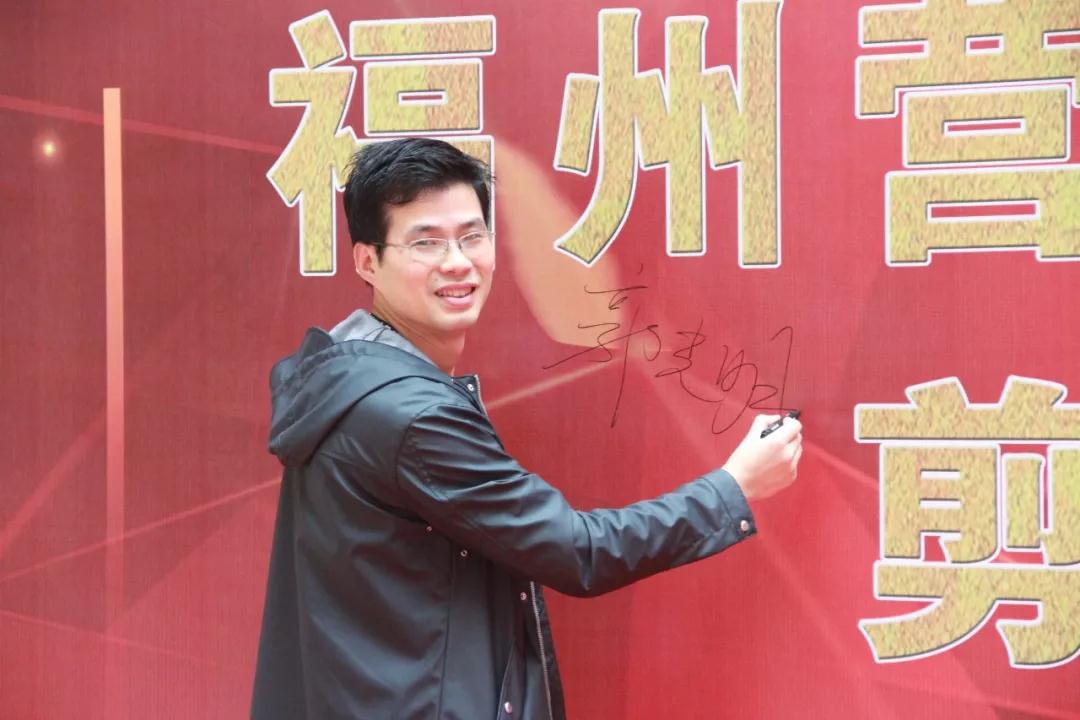 福州营
郭老明
剪